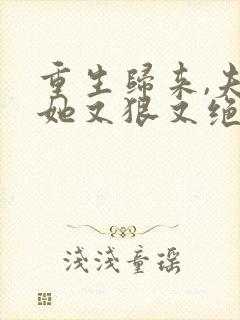 重生歸来,夫
她又狠又绝
淺淺童瑶